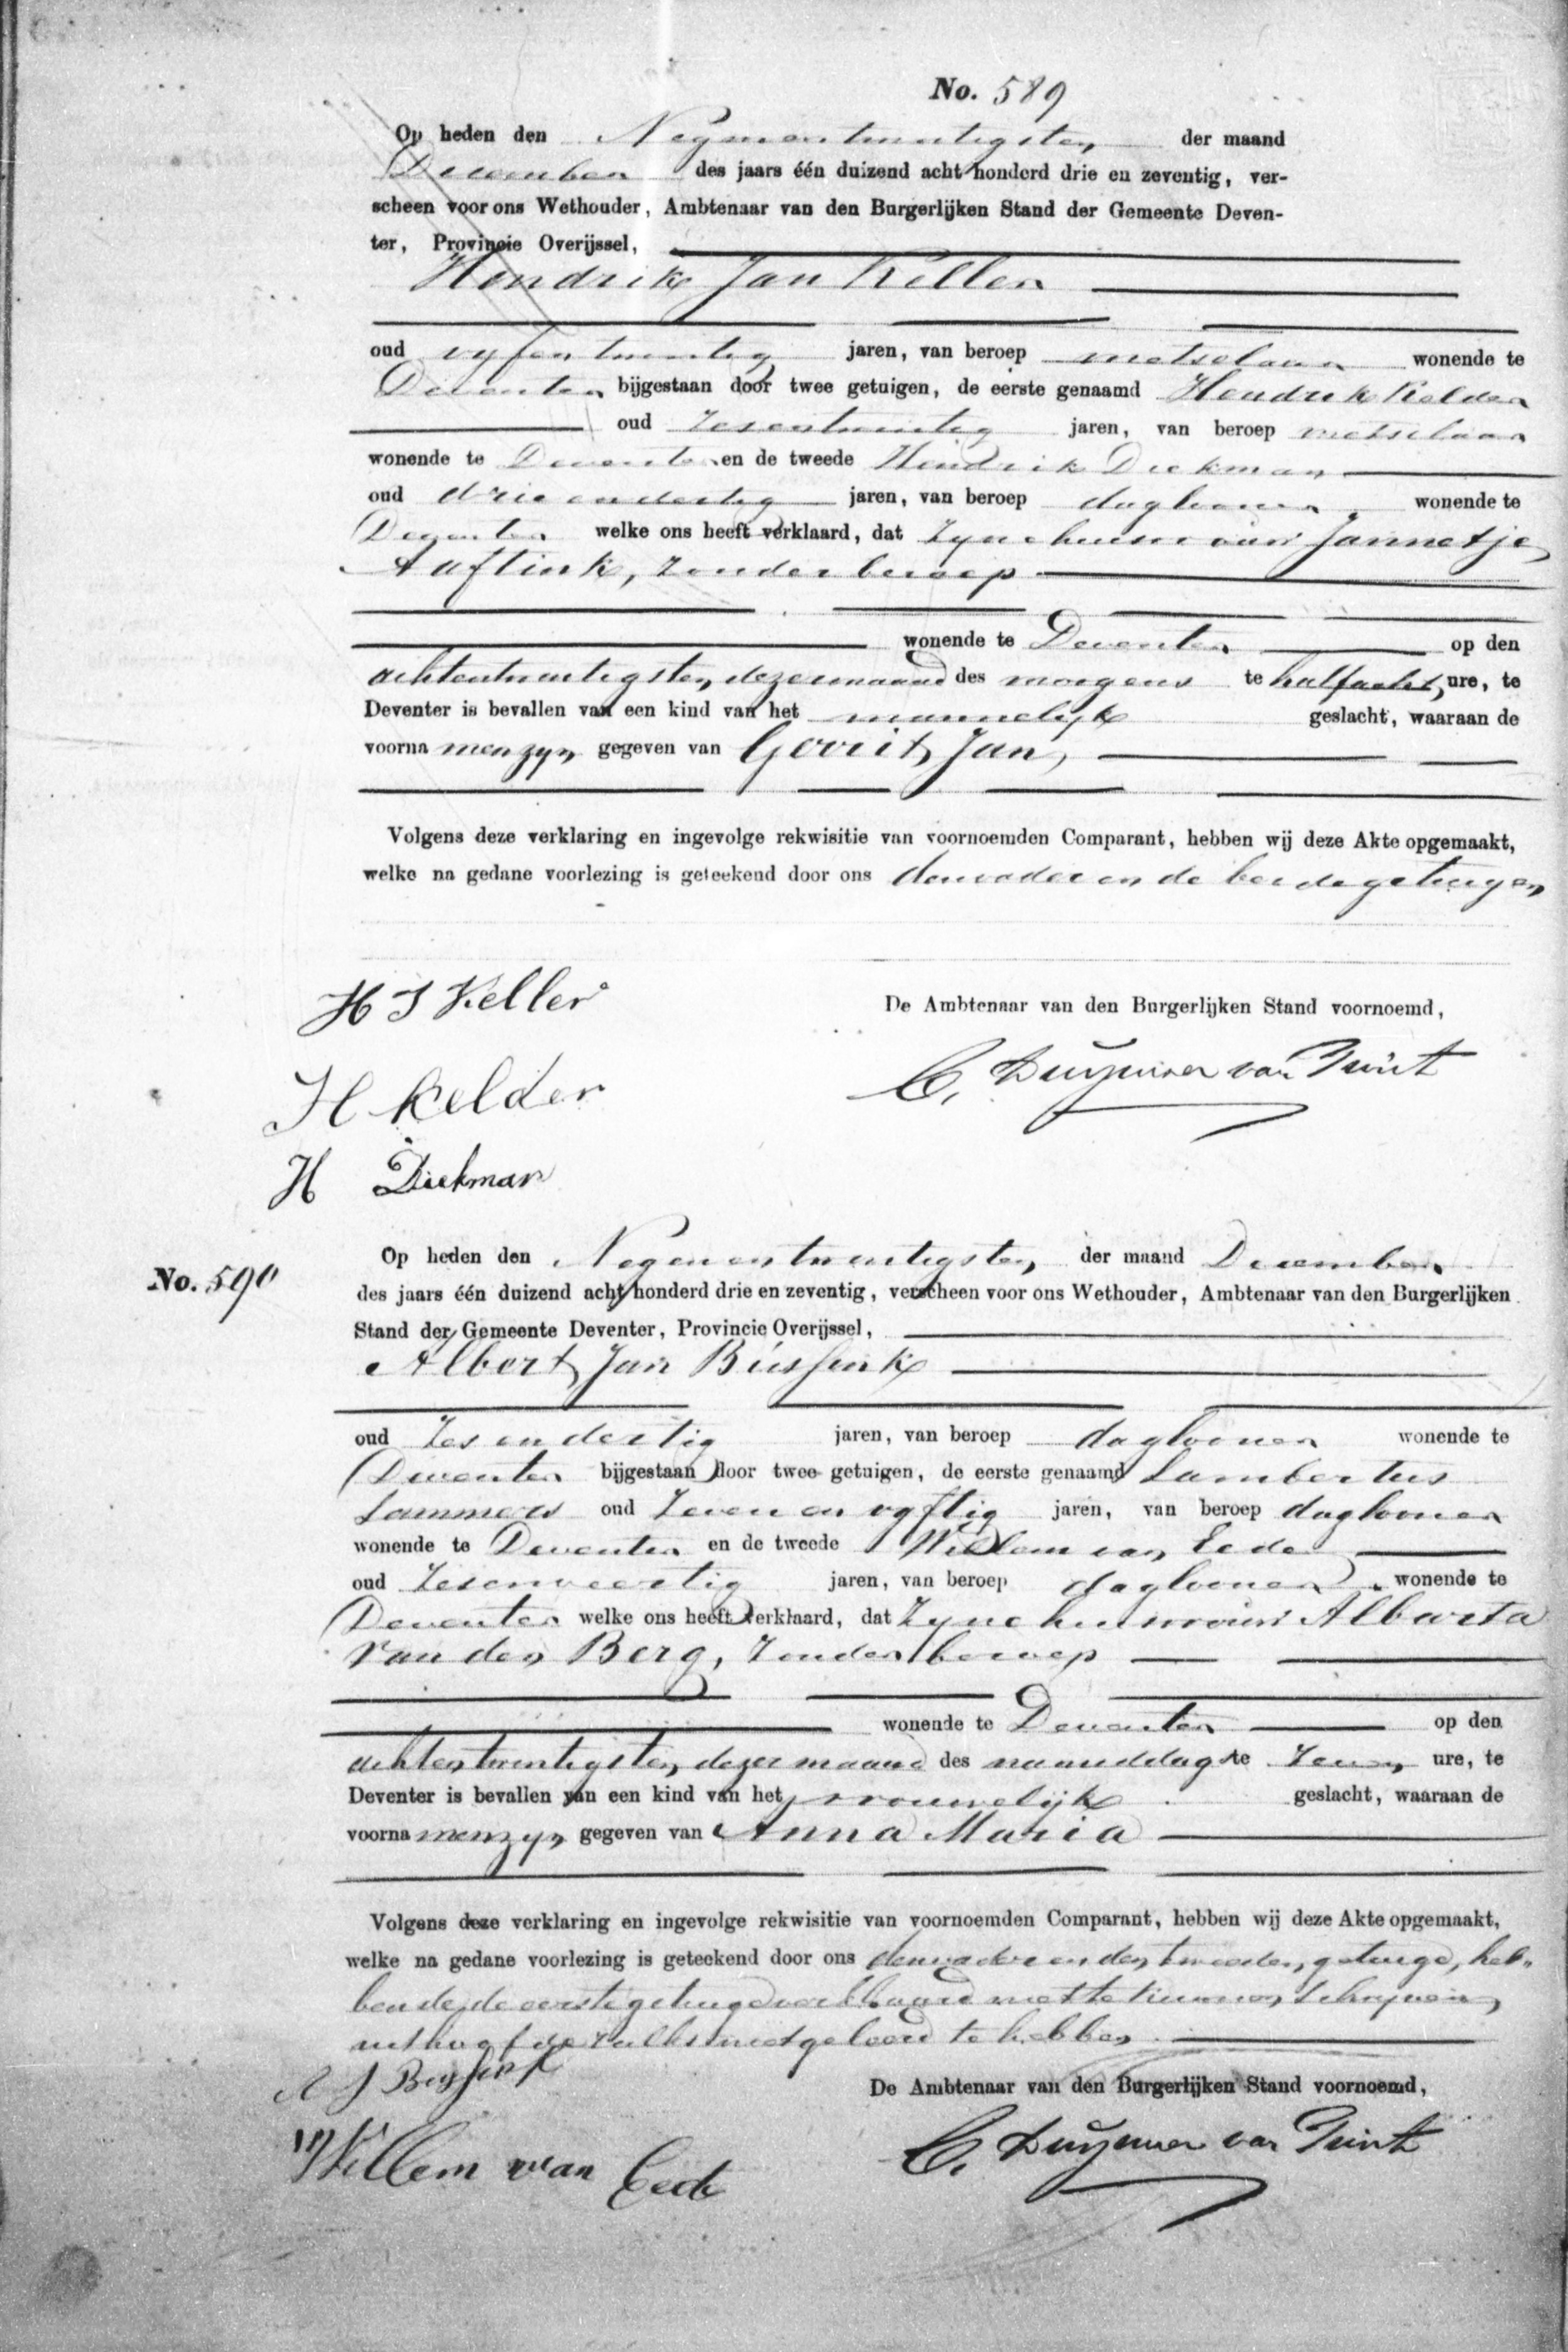 No. 589
Op heden den Negenentwintigsten der maand
December des jaars één duizend acht honderd drie en zeventig, ver-
scheen voor ons Wethouder, Ambtenaar van den Burgerlijken Stand der Gemeente Deven-
ter, Provincie Overijssel,
Hendrik Jan Keller
oud vyfentwintig jaren, van beroep metselaar wonende te
Deventer bijgestaan door twee getuigen, de eerste genaamd Hendrik Kelder
oud zesentwintig jaren, van beroep metselaar
wonende te Deventer en de tweede Hendrik Diekman
oud drieendertig jaren, van beroep daglooner wonende te
Deventer welke ons heeft verklaard, dat zyne huisvrouw Jannetje
Aaftink, zonder beroep
wonende te Deventer op den
achtentwintigsten dezer maand des morgens te half acht ure, te
Deventer is bevallen van een kind van het mannelijk geslacht, waaraan de
voorna men zyn gegeven van Gerrit Jan
Volgens deze verklaring en ingevolge rekwisitie van voornoemden Comparant, hebben wij deze Akte opgemaakt,
welke na gedane voorlezing is geteekend door ons den vader en de beide getuigen
H J Keller
De Ambtenaar van den Burgerlijken Stand voornoemd,
C. Duymaer van Twist
H Kelder
H Diekman
No. 590
Op heden den Negenentwintigsten der maand December
des jaars één duizend acht honderd drie en zeventig, verscheen voor ons Wethouder, Ambtenaar van den Burgerlijken
Stand der Gemeente Deventer, Provincie Overijssel,
Albert Jan Bussink
oud Zesendertig jaren, van beroep daglooner wonende te
Deventer bijgestaan door twee getuigen, de eerste genaamd Lambertus
Lammers oud Zeven en vyftig jaren, van beroep daglooner
wonende te Deventer en de tweede Willem van Eede
oud Zesenveertig jaren, van beroep daglooner wonende te
Deventer welke ons heeft verklaard, dat zyne huisvrouw Alberta
van den Berg, zonder beroep
wonende te Deventer op den
achtentwintigsten dezer maand des namiddags te Zeven ure, te
Deventer is bevallen van een kind van het vrouwelijk geslacht, waaraan de
voorna men zyn gegeven van Anna Maria
Volgens deze verklaring en ingevolge rekwisitie van voornoemden Comparant, hebben wij deze Akte opgemaakt,
welke na gedane voorlezing is geteekend door ons den vader en den tweeden getuige, heb-
bende de eerste getuige verklaard niet te kunnen schryven
uit hoofde zulks niet geleerd te hebben
A J Bussink
De Ambtenaar van den Burgerlijken Stand voornoemd,
Willem van Eede
C. Duymaer van Twist